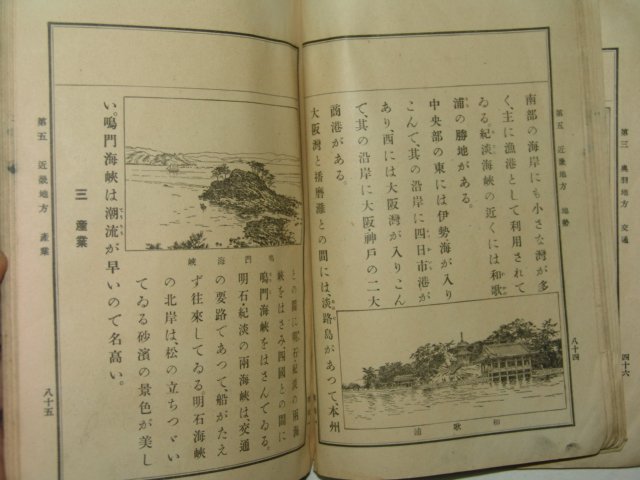 第三 奥羽地方 交通
四十六
第五 近畿地方 地勢
八十四
南部の海岸にも小さな灣が多
く、主に漁港として利用されて
ゐる。紀淡海峽の近くには和歌
浦の勝地がある。
中央部の東には伊勢海が入り
こんで、其の沿岸に四日市港が
あり、西には大阪灣が入りこん
で、其の沿岸に大阪神戸の二大
商港がある。
大阪灣と播磨灘との間には淡路島があつて、本州
和歌浦
との間に明石紀淡の兩海
峽をはさみ、四國との間に
鳴門海峽をはさんでゐる。
明石紀淡の兩海峽は、交通
の要路であつて、船がたえ
ず往來してゐる。明石海峽
の北岸は、松の立ちつゞい
てゐる砂濱の景色が美し
鳴門海峽
い。鳴門海峽は潮流が早いので名高い。
三 産業
第五 近畿地方 産業
八十五